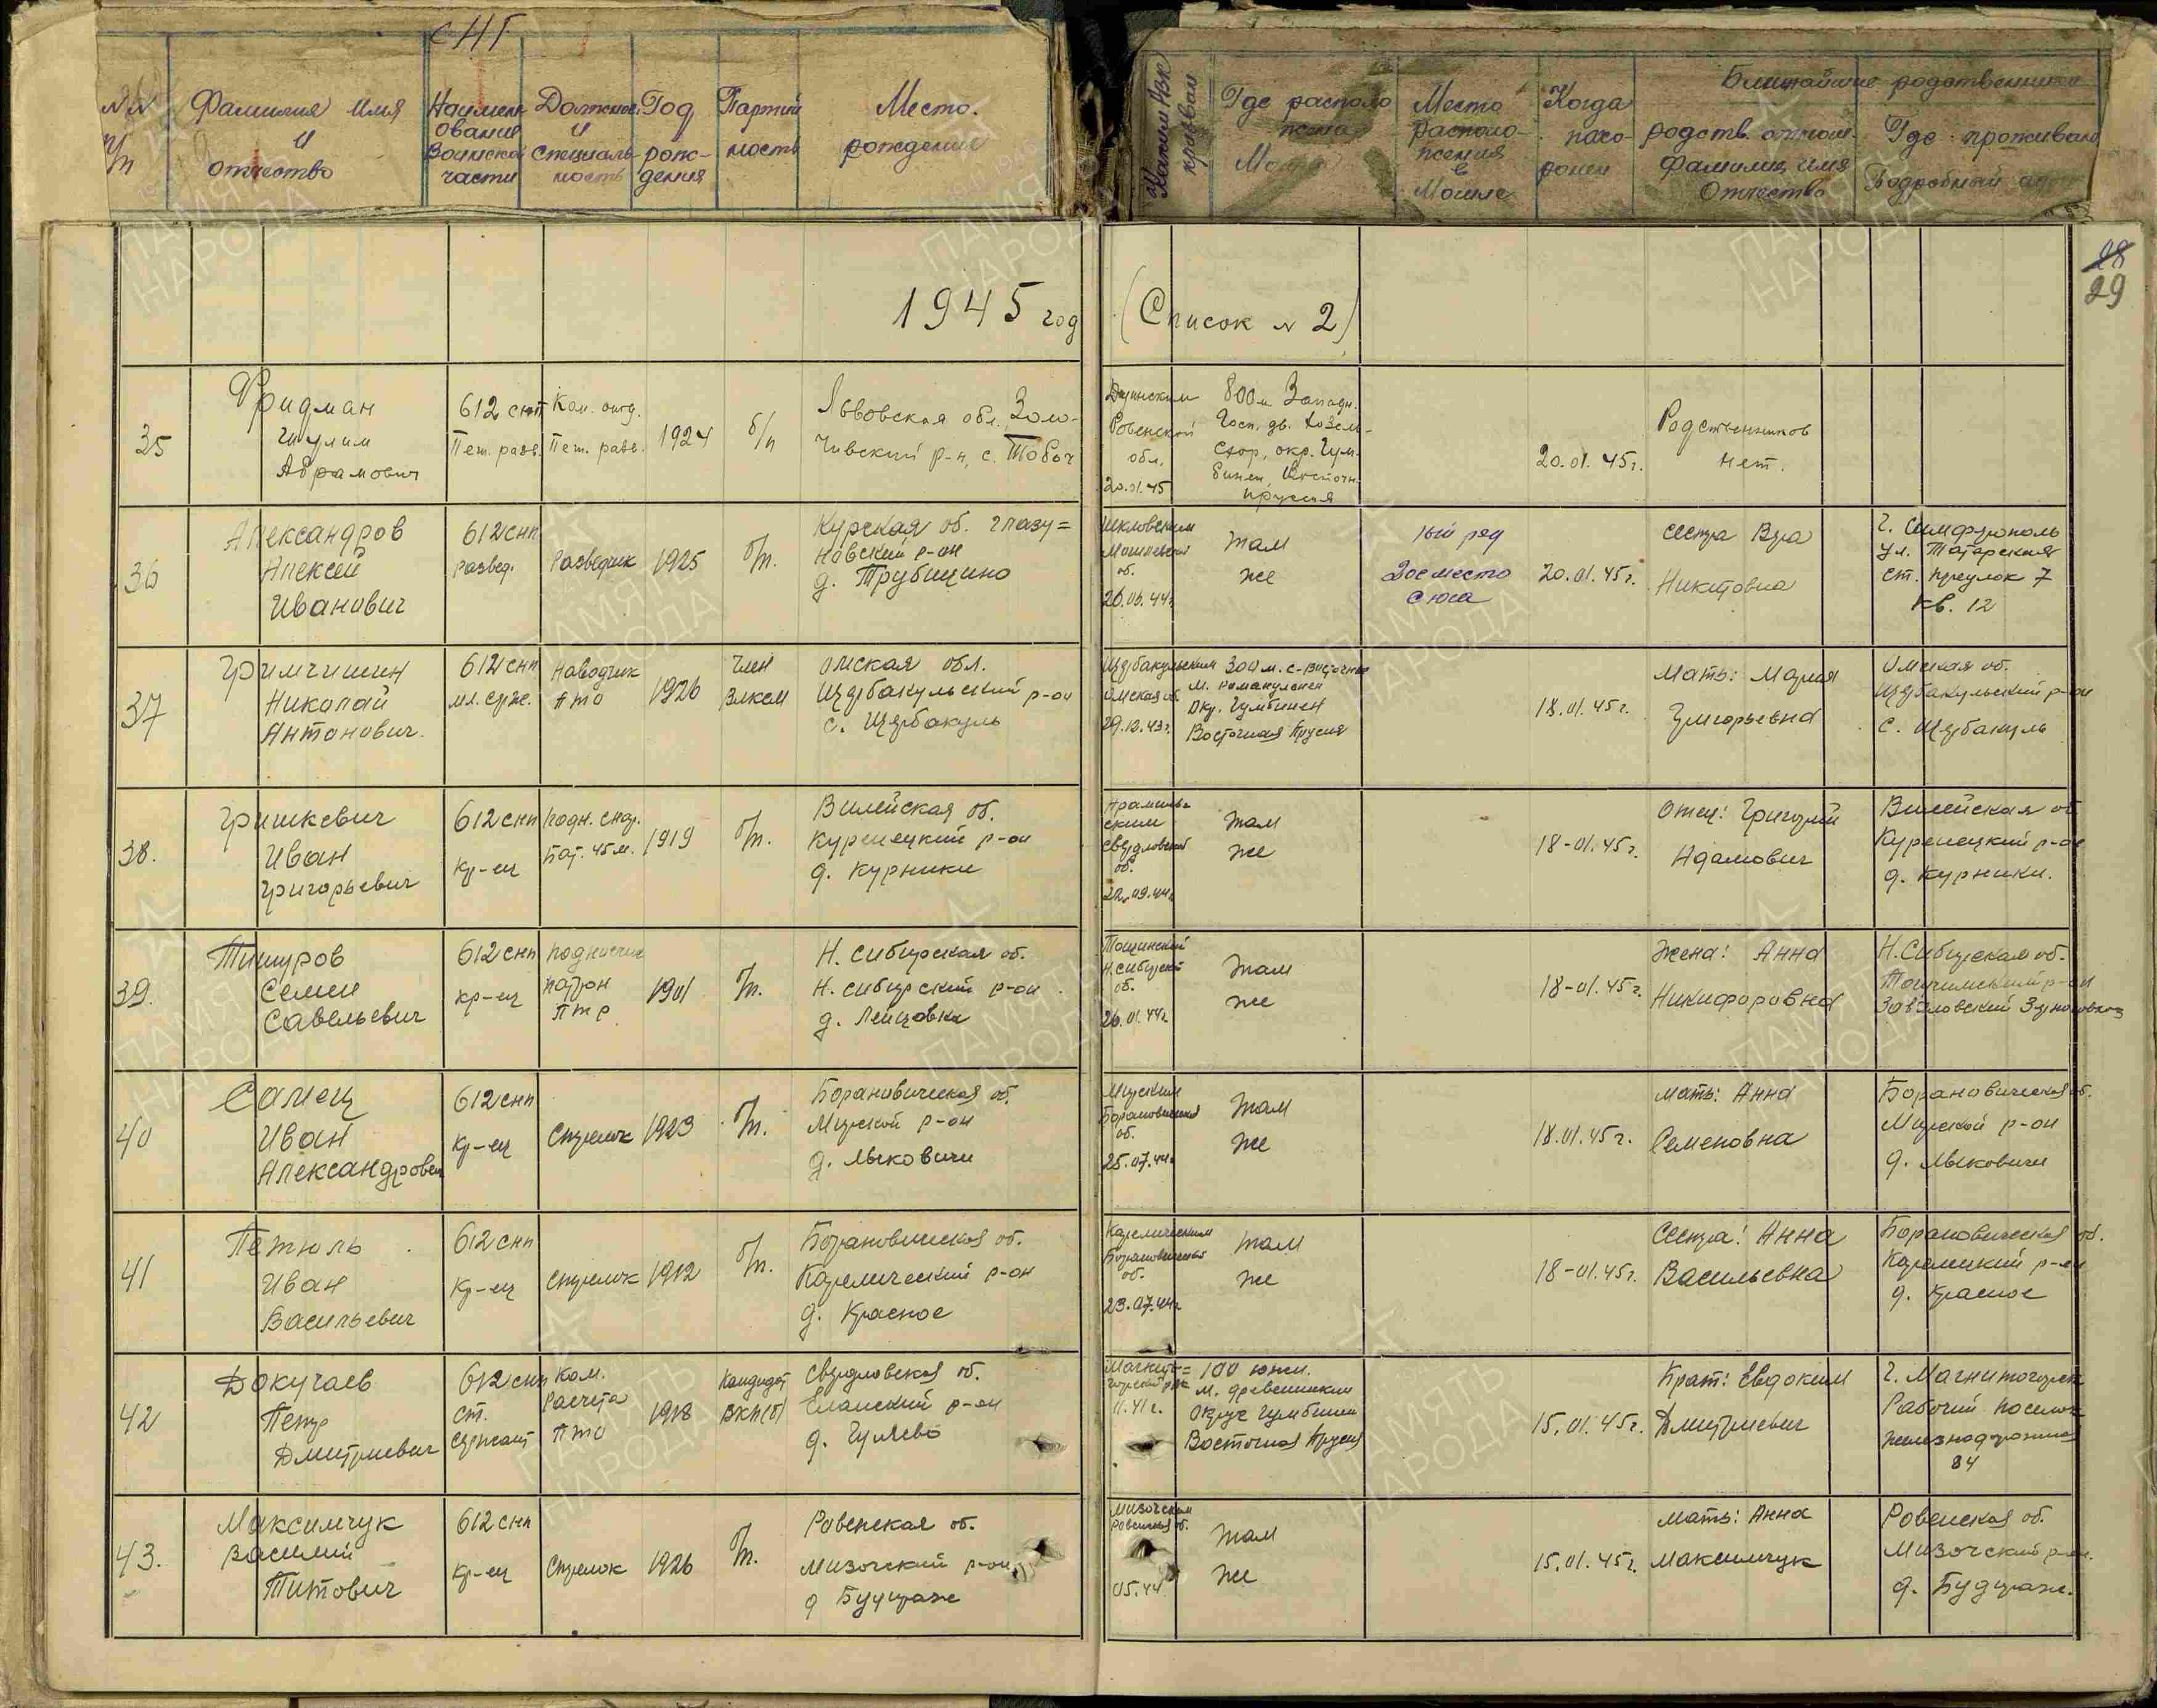 СНГ
NN п/п
Фамилия Имя и отчество
Наимен-ование Воинской части
Должнос. и специаль-ность
Год рож-дения
Партий ность
Место. рождения
Каким РВК призван
Где располо жена
Место располо-жения в Могиле
Когда похо-ронен
Ближайшие родственники
родств. отнош. Фамилия, имя Отчество
Где проживает
Подробный
28
29
1945 год (Список N 2)
35
Фридман
Абрамович
612 снп
Пеш. разв.
Ком. отд.
Пеш. разв.
1924
б/п
Львовская обл. Золо-
чивский р-н, с.
Ровенской
обл.
20.01.45
800м Западн.
Госп. дв.
окр. Гум-
бинен, Восточн.
Пруссия
20.01.45г.
Родственников
нет.
36
Александров
Алексей
Иванович
612 снп
развед.
Разведчик
1925
б/п.
Курская об. Глазу=
новский р-он
д. Трубицино
Шкловским
об.
там
же
1ый ряд
2ое место
с юга
20.01.45г.
сестра Вера
Никитовна
г. Симферополь
ул. Татарская
кв. 12
37
Гримчишин
Николай
Антонович.
612 снп
мл. серж.
Наводчик
ПТО
1926
член
ВЛКСМ
Омская обл.
Щербакульский р-он
с. Щербакуль
Щербакульским
Омская об.
29.12.43г.
300 м. с-восточнее
Окр. Гумбинен
Восточная Пруссия
18.01.45г.
Мать: Мария
Григорьевна
Омская об.
Щербакульский р-он
с. Щербакуль
38.
Гришкевич
Иван
Григорьевич
612 снп
Кр-ец
Подн. снар.
Бат. 45 м.
1919
б/п.
Вилейская об.
Куренецкий р-он
д. Курники
Свердловской
об.
22.09.44г.
там
же
18-01.45г.
Отец: Григорий
Адамович
Вилейская об
Куренецкий р-он
д. Курники.
39.
Тимуров
Семен
Савельевич
612 снп
кр-ец
подносчик
патрон
ПТР
1901
б/п.
Н. Сибирская об.
Н. Сибирский р-он
Н. Сибирской
об.
26.01.44г.
там
же
18-01.45г.
Жена: Анна
Никифоровна
Н. Сибирская об.
40
Самец
Иван
Александрович
612 снп
Кр-ец
Стрелок
1923
б/п.
Борановическая об.
Мирской р-он
д. Лыковичи
Мирским
Борановическая
об.
25.07.44г.
там
же
18.01.45г.
Мать: Анна
Семеновна
Борановическая об.
Мирской р-он
д. Лыковичи
41
Петюль
Иван
Васильевич
612 снп
Кр-ец
Стрелок
1912
б/п.
Борановическая об.
Карелический р-он
д. Красное
Кареличским
Борановической
об.
23.07.44г.
там
же
18-01.45г.
Сестра: Анна
Васильевна
Борановическая об.
Карелицкий р-он
д. Красное
42
Докучаев
Петр
Дмитриевич
612 снп
ст.
Сержант
Ком.
Расчета
ПТО
1918
Кандидат
ВКП(б)
Свердловская об.
Еланский р-он
д. Гуляево
Магнито=
горский рвк
11.41г.
100 южн.
Округ Гумбинен
Восточная Пруссия
15.01.45г.
Брат: Евдоким
Дмитриевич
г. Магнитогорск
Рабочий поселок
Железнодорожная
84
43.
Максимчук
Василий
Титович
612 снп
Кр-ец
Стрелок
1926
б/п.
Ровенская об.
Мизочский р-он
Мизочским
Ровенская об.
05.44
там
же
15.01.45г.
Мать: Анна
Максимчук
Ровенская об.
Мизочский р-он.
д. Будераж.
ПАМЯТЬ
НАРОДА